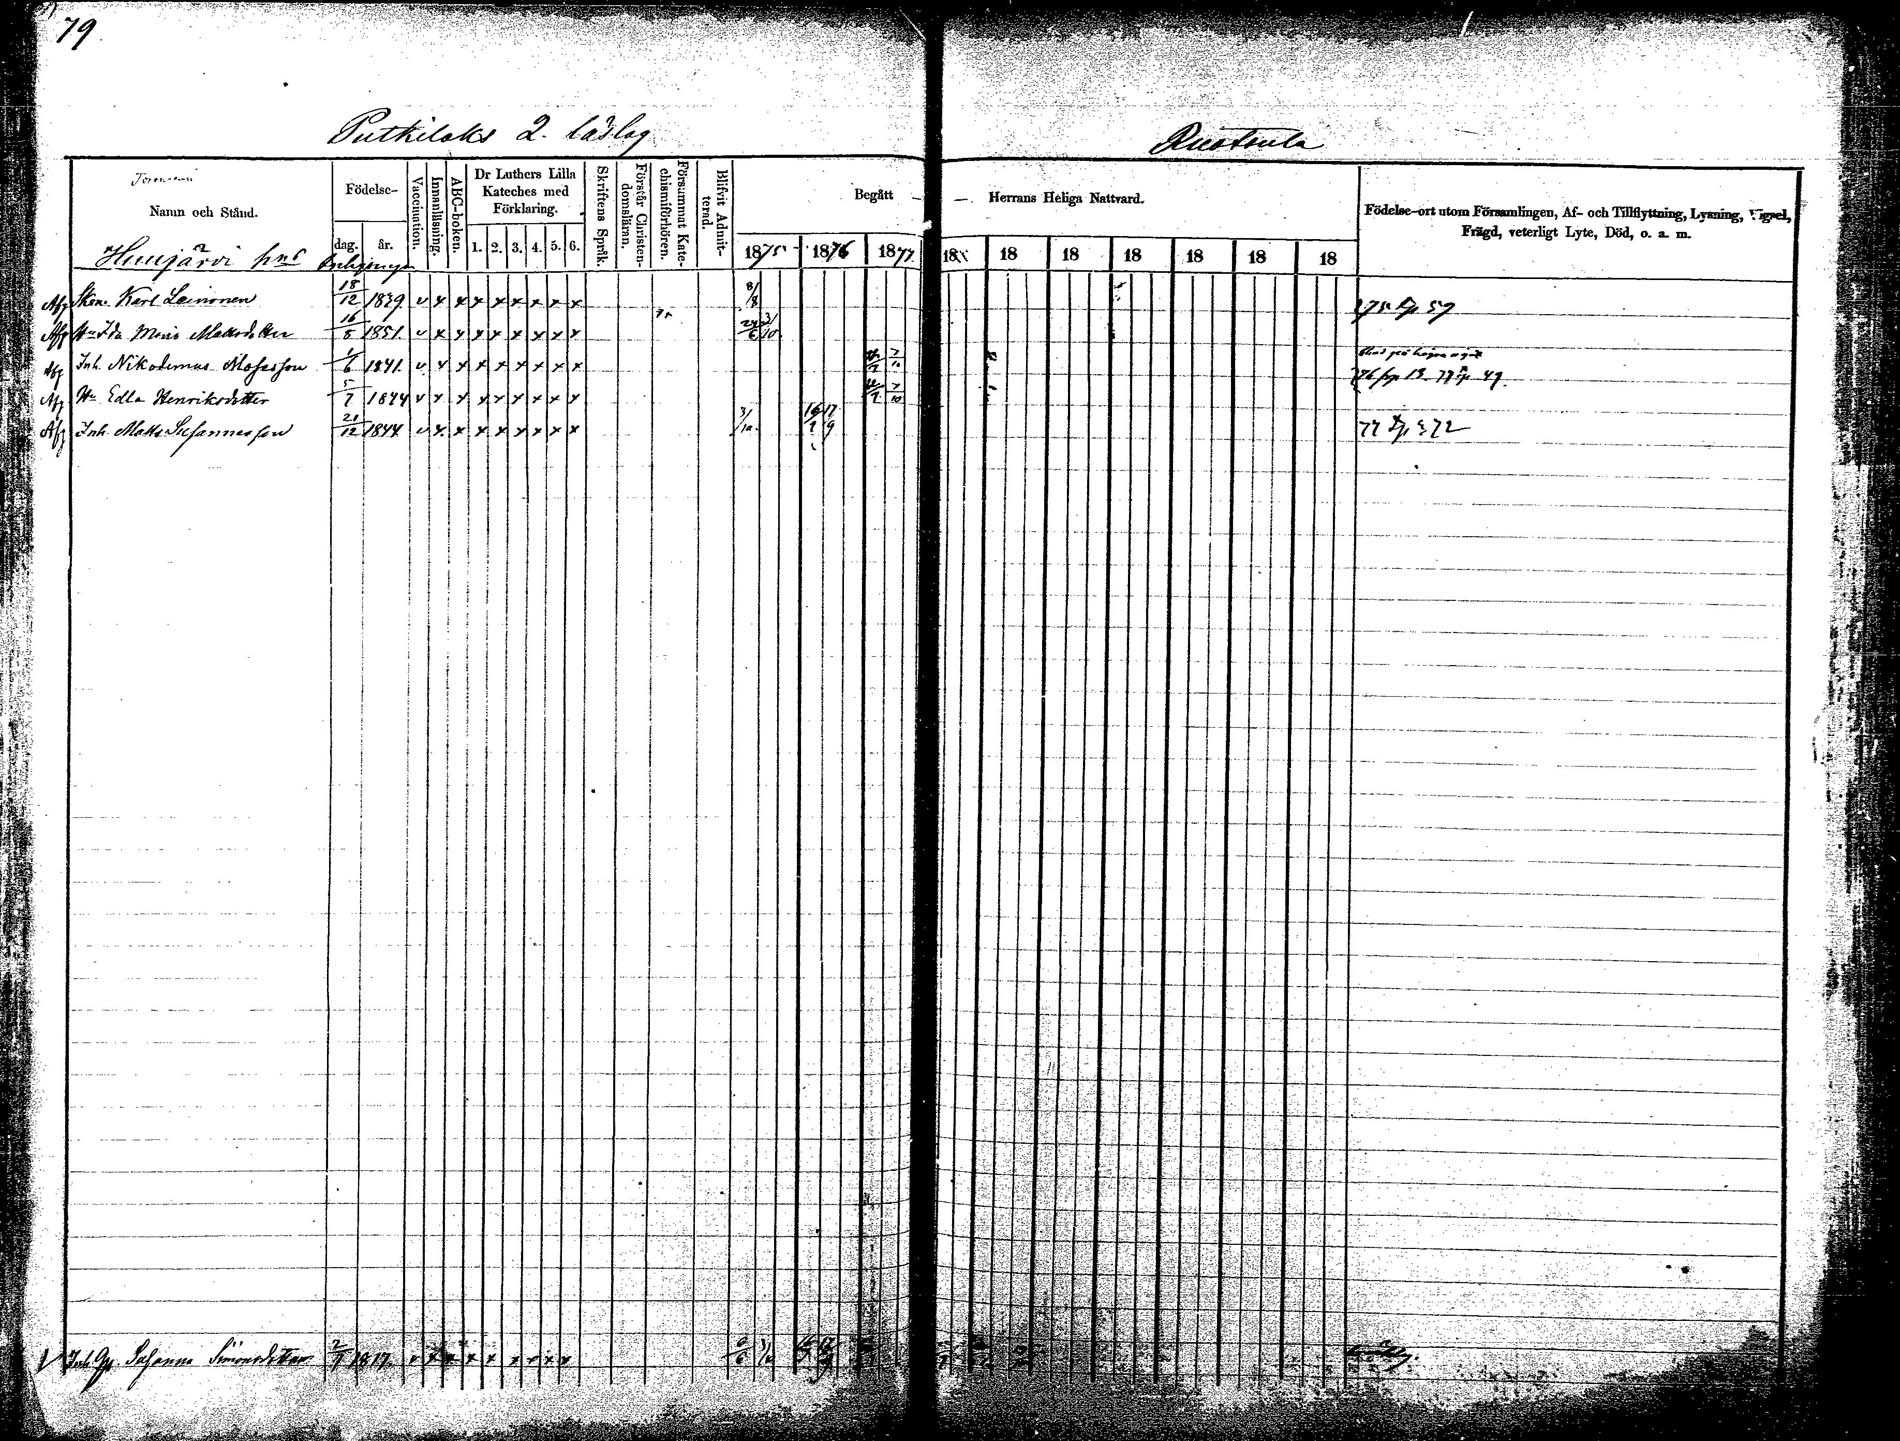 79
Putkilaks 2. läslag
Ruotsula
Namn och Stånd.
Födelse-
dag. år.
Vaccination.
Innanläsning.
ABC-boken.
Dr Luthers Lilla Kateches med Förklaring.
1. 2. 3. 4. 5. 6.
Skriftens Språk.
Förstår Christendomsläran.
Försummat Katechismiförhören.
Blifvit Admitterad.
Begått — — Herrans Heliga Nattvard.
1875 1876 1877 18 18 18 18 18 18 18
Födelse-ort utom Församlingen, Af- och Tillflyttning, Lysning, Vigsel, Frägd, veterligt Lyte, Död, o. a. m.
Afg Karl Leinonen 18/12 1829 v x x x x x x x x 8/8 75 fp 57
Afg Hu Ida Maria Mattsdotter 16/8 1851 v x x x x x x x x 24/6 3/10
Afg Inh. Nikodemus Mosesson 1841 v x x x x x x x x 7/10
Afg Hu Edla Henriksdotter 5/7 1844 v x x x x x x x x 7/10 76 fp 13 77 fp 49
Afg Inh. Matts Susannesson 21/12 1844 v x x x x x x x x 3/10 16/7 17/9 77 fp 372
Inh. Susanna Simonsdotter 2/7 1817 v x x x x x x x x